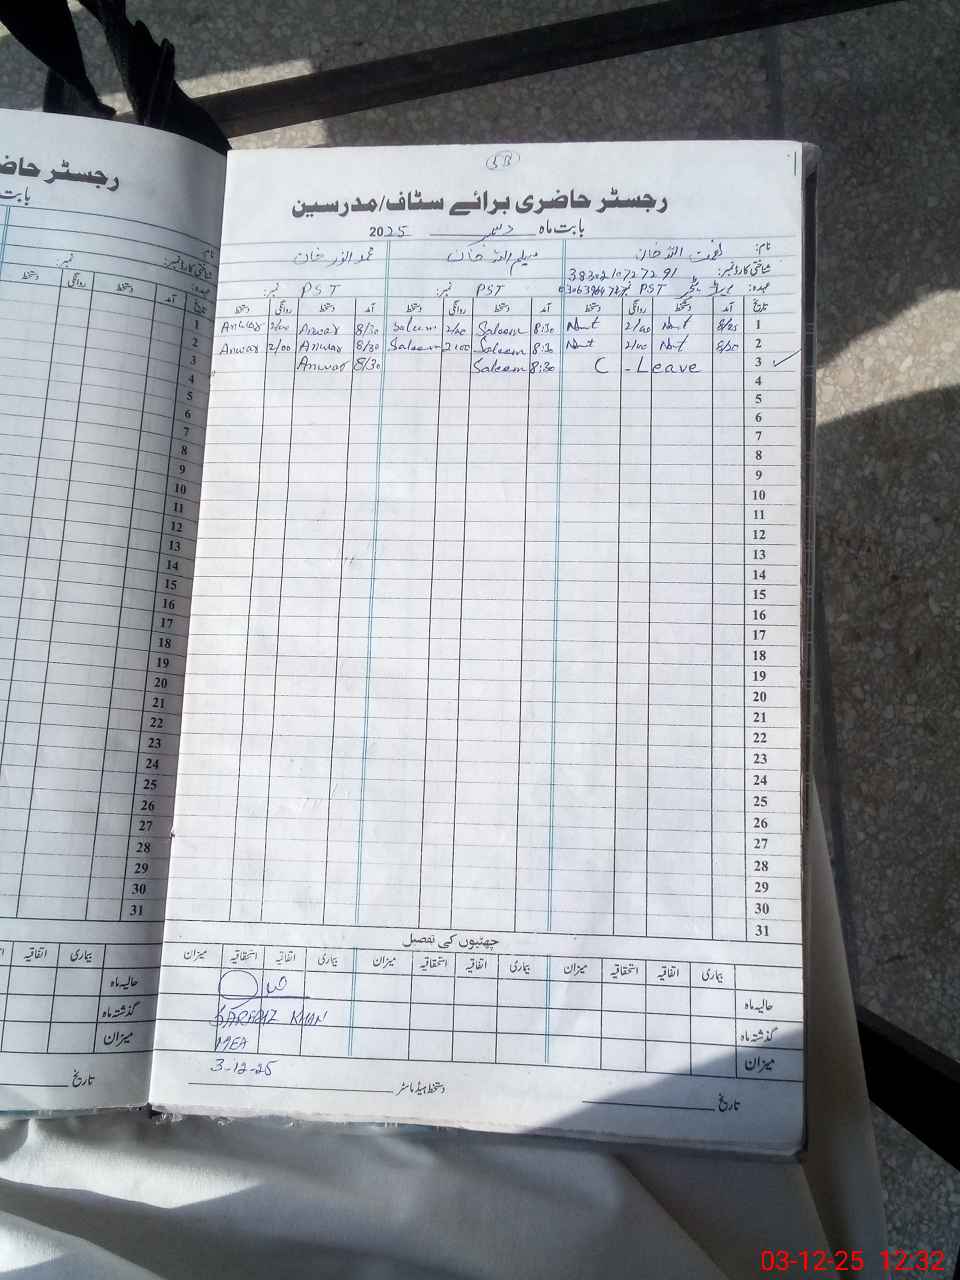 5B
رجسٹر حاضری برائے سٹاف/مدرسین
بابت ماہ دسمبر 2025
نام: نعمت اللہ خان سلیم اللہ خان محمد انور خان
شناختی کارڈ نمبر: 3830210727291
عہدہ: ہیڈ ٹیچر PST نمبر PST نمبر: PST نمبر:
تاریخ آمد دستخط روانگی دستخط آمد دستخط روانگی دستخط آمد دستخط روانگی دستخط
1 8/25 2/00 8:30 Saleem 2/00 Saleem 8/30 Anwar 2/00 Anwar
2 2/00 8:30 Saleem 2:00 Saleem 8/30 Anwar 2/00 Anwar
3 C - Leave 8:30 Saleem 8/30 Anwar
4
5
6
7
8
9
10
11
12
13
14
15
16
17
18
19
20
21
22
23
24
25
26
27
28
29
30
31
چھٹیوں کی تفصیل
بیماری اتفاقیہ استحقاقیہ میزان بیماری اتفاقیہ استحقاقیہ میزان بیماری اتفاقیہ استحقاقیہ میزان
حالیہ ماہ
گذشتہ ماہ
SARFRAZ KHAN
میزان
MEA
3-12-25
تاریخ دستخط ہیڈ ماسٹر
رجسٹر حاض
بابت
نام:
شناختی کارڈ نمبر:
عہدہ: نمبر:
تاریخ آمد دستخط روانگی دستخط
1
2
3
4
5
6
7
8
9
10
11
12
13
14
15
16
17
18
19
20
21
22
23
24
25
26
27
28
29
30
31
بیماری اتفاقیہ
حالیہ ماہ
گذشتہ ماہ
میزان
تاریخ
03-12-25 12:32